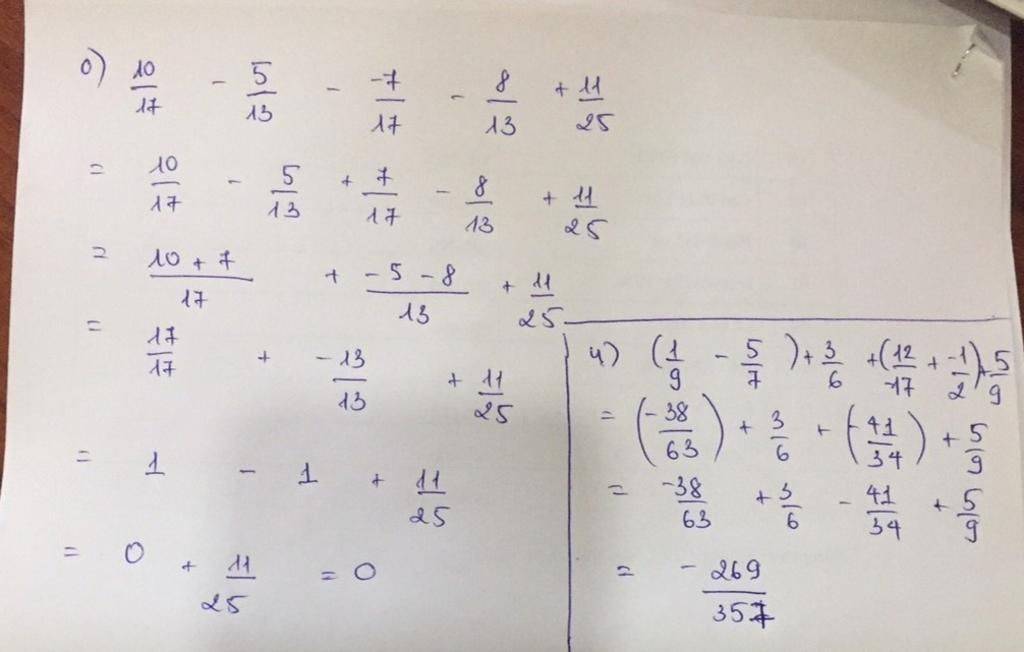 o) 10/17 - 5/13 - -7/17 - 8/13 + 11/25
= 10/17 - 5/13 + 7/17 - 8/13 + 11/25
= (10 + 7)/17 + (- 5 - 8)/13 + 11/25
= 17/17 + -13/13 + 11/25
= 1 - 1 + 11/25
= 0 + 11/25 = 0
4) (1/9 - 5/7) + 3/6 + (12/-17 + -1/2) + 5/9
= (-38/63) + 3/6 + (-41/34) + 5/9
= -38/63 + 3/6 - 41/34 + 5/9
= - 269/357